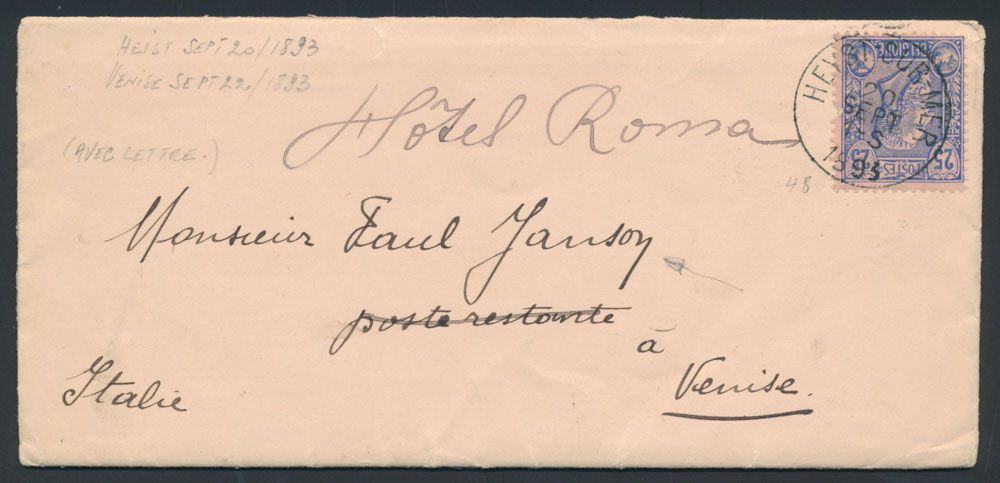 HEIST SEPT 20/1893
VENISE SEPT 22/1893
(AVEC LETTRE.)
Hôtel Roma
48
Monsieur Paul Janson
poste restante
à
Venise.
Italie
HEYST-SUR-MER
20
SEPT
1893
BELGIQUE
POSTES
25 25